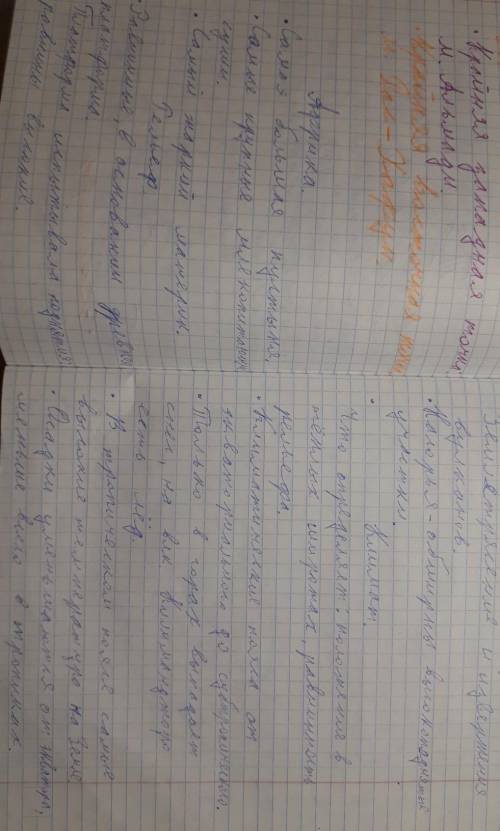 • Крайняя западная точка:
м. Альмади.
Крайняя восточная точка
м. Рас-Хафун.
Африка.
• Самая большая пустыня.
• Самые крупные млекопитающие
суши.
• Самый жаркий материк.
Рельеф.
• Равнинные, в основании древняя
платформа.
Платформа испытывала поднятия
равнины высокие.
Землетрясение и извержения
вулканов.
• Нагорья - обширные высокоподнятые
участки.
Климат.
• Что определяет: положение в
тёплых широтах, равнинность
рельефа.
• Климатические пояса от
экваториального до субтропического.
• Только в горах выпадает
снег, на влк Килиманджаро
есть лёд.
• В тропическом поясе самые
высокие температуры на Земле
• Осадки уменьшаются от экватора,
меньше всего в тропиках.